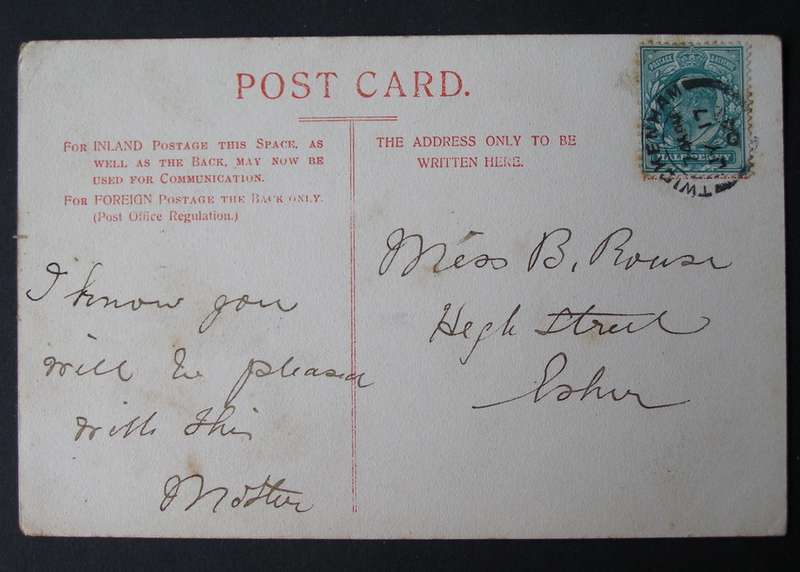 POST CARD.
FOR INLAND POSTAGE THIS SPACE, AS
WELL AS THE BACK, MAY NOW BE
USED FOR COMMUNICATION.
FOR FOREIGN POSTAGE THE BACK ONLY.
(Post Office Regulation.)
THE ADDRESS ONLY TO BE
WRITTEN HERE.
HALFPENNY
TWICKENHAM
I know you
will be pleased
with this
Mother
Miss B. Rouse
High Street
Esher